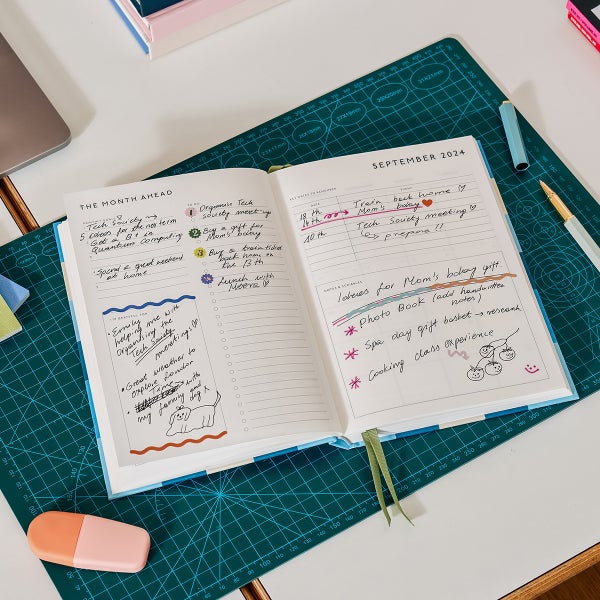 THE MONTH AHEAD
Tech Society
5 Ideas for the new term
Get a 9 in
Quantum Computing
Spend a good weekend
at home
TO DO
1 Organise Tech
society meet-up
2 Buy a gift for
Mom's bday
3 Buy a train ticket
back home on
the 13th
Lunch with
Meera
I'M GRATEFUL FOR
• Emily
helping me with
organising the
Tech Society
meeting!
• Great weather to
explore London
Time with
my family and
dog
SEPTEMBER 2024
KEY DATES TO REMEMBER
DATE
13th Train back home
14th Mom's bday
10th Tech Society meeting
→ prepare!!
NOTES & SCRIBBLES
Ideas for Mom's bday gift
Photo Book (add handwritten
notes)
Spa day gift basket → research
Cooking class experience
31x21mm